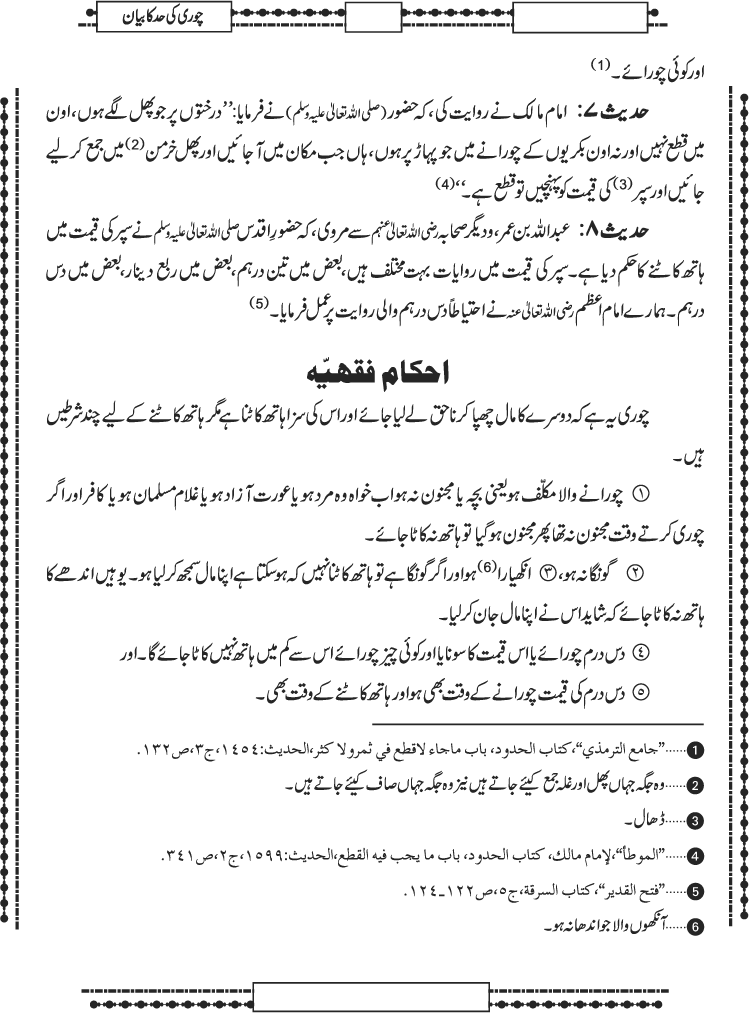 چوری کی حد کا بیان
اور کوئی چورائے۔(1)
حدیث ۷: امام مالک نے روایت کی، کہ حضور (صلی اللہ تعالیٰ علیہ وسلم) نے فرمایا: ’’درختوں پر جو پھل لگے ہوں، اون
میں قطع نہیں اور نہ اون بکریوں کے چورانے میں جو پہاڑ پر ہوں، ہاں جب مکان میں آجائیں اور پھل خرمن(2) میں جمع کر لیے
جائیں اور سپر(3) کی قیمت کو پہنچیں تو قطع ہے۔‘‘(4)
حدیث ۸: عبداللہ بن عمر، و دیگر صحابہ رضی اللہ تعالیٰ عنہم سے مروی، کہ حضورِ اقدس صلی اللہ تعالیٰ علیہ وسلم نے سپر کی قیمت میں
ہاتھ کاٹنے کا حکم دیا ہے۔ سپر کی قیمت میں روایات بہت مختلف ہیں، بعض میں تین درہم، بعض میں ربع دینار، بعض میں دس
درہم۔ ہمارے امام اعظم رضی اللہ تعالیٰ عنہ نے احتیاطاً دس درہم والی روایت پر عمل فرمایا۔(5)
احکام فقھیّہ
چوری یہ ہے کہ دوسرے کا مال چھپا کر ناحق لے لیا جائے اور اس کی سزا ہاتھ کاٹنا ہے مگر ہاتھ کاٹنے کے لیے چند شرطیں
ہیں۔
① چورانے والا مکلّف ہو یعنی بچہ یا مجنون نہ ہو اب خواہ وہ مرد ہو یا عورت آزاد ہو یا غلام مسلمان ہو یا کافر اور اگر
چوری کرتے وقت مجنون نہ تھا پھر مجنون ہو گیا تو ہاتھ نہ کاٹا جائے۔
② گونگا نہ ہو، ③ انکھیارا(6) ہو اور اگر گونگا ہے تو ہاتھ کاٹنا نہیں کہ ہوسکتا ہے اپنا مال سمجھ کر لیا ہو۔ یوہیں اندھے کا
ہاتھ نہ کاٹا جائے کہ شاید اس نے اپنا مال جان کر لیا۔
④ دس درم چورائے یا اس قیمت کا سونا یا اور کوئی چیز چورائے اس سے کم میں ہاتھ نہیں کاٹا جائے گا۔ اور
⑤ دس درم کی قیمت چورانے کے وقت بھی ہو اور ہاتھ کاٹنے کے وقت بھی۔
1......’’جامع الترمذي‘‘، کتاب الحدود، باب ماجاء لاقطع في ثمر ولا کثر، الحدیث: ١٤٥٤، ج٣، ص١٣٢.
2......وہ جگہ جہاں پھل اور غلہ جمع کیئے جاتے ہیں نیز وہ جگہ جہاں صاف کیئے جاتے ہیں۔
3......ڈھال۔
4......’’الموطأ‘‘، لإمام مالك، کتاب الحدود، باب ما یجب فیه القطع، الحدیث: ١٥٩٩، ج٢، ص٣٤١.
5......’’فتح القدیر‘‘، کتاب السرقة، ج٥، ص١٢٢ـ١٢٤.
6......آنکھوں والا جو اندھا نہ ہو۔